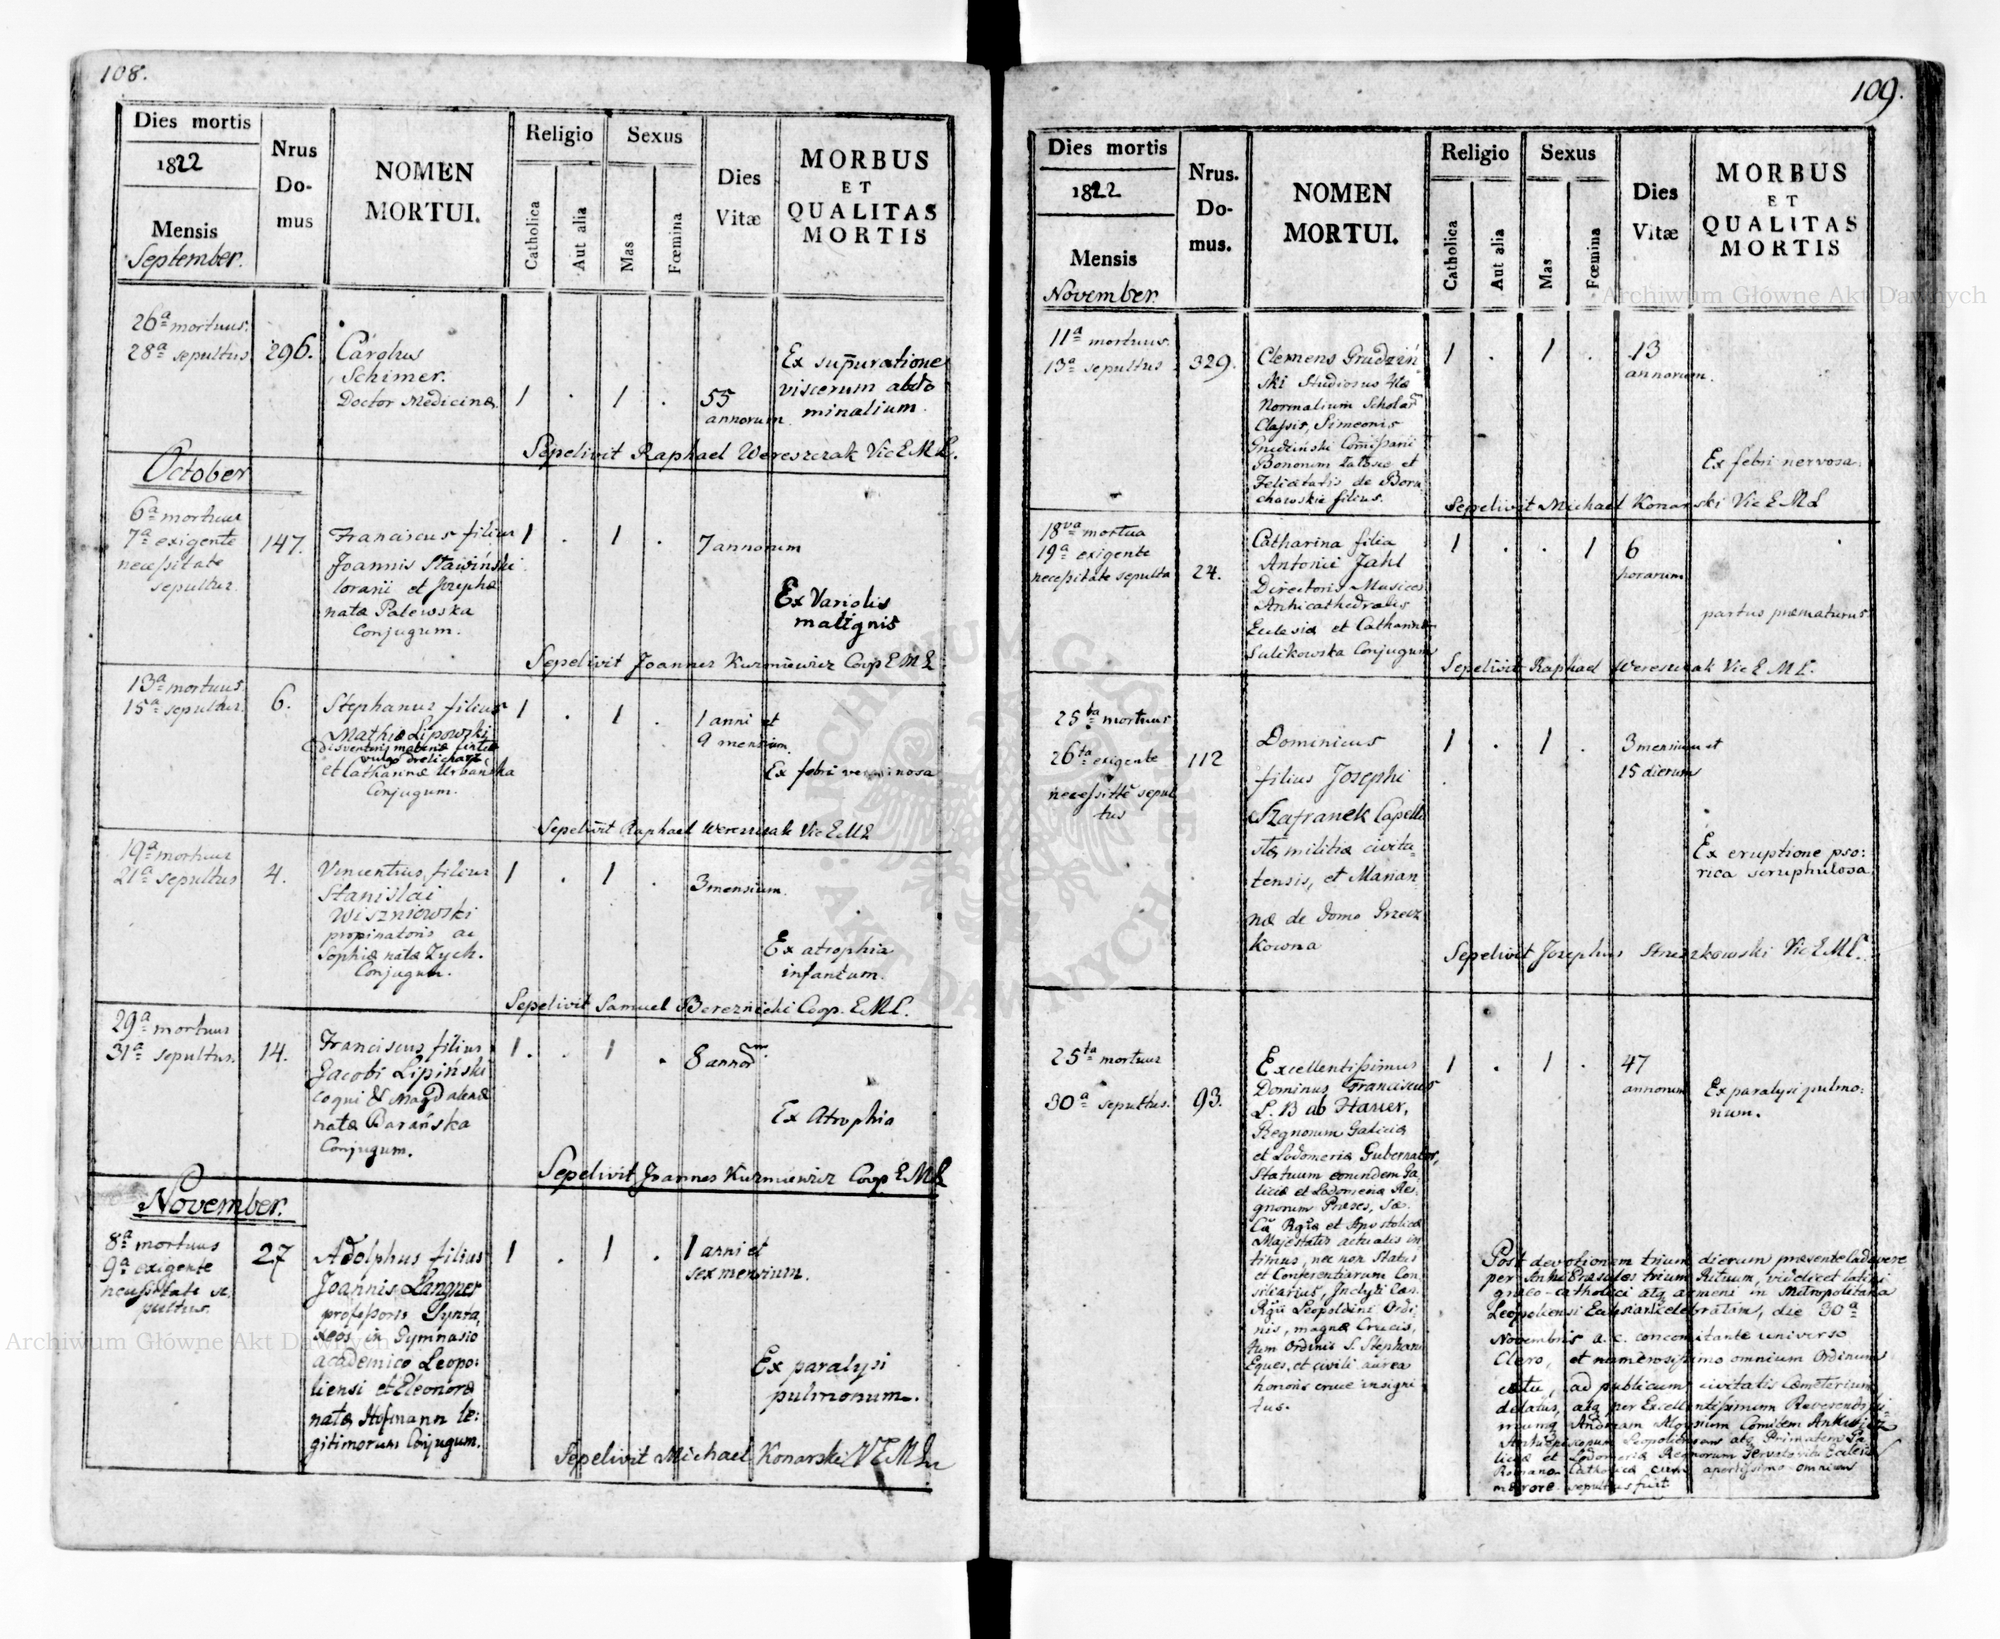 108.
Dies mortis
1822
Mensis
September.
Nrus
Do-
mus
NOMEN
MORTUI.
Religio
Catholica
Aut alia
Sexus
Mas
Fœmina
Dies
Vitæ
MORBUS
ET
QUALITAS
MORTIS
26ª mortuus.
28ª sepultus
296.
Carolus
Schimer.
Doctor Medicinæ
1 . 1 .
55
annorum
Ex supuratione
viscerum abdo
minalium.
Sepelivit Raphael Wereszczak Vic E. M. L.
October
6ª mortuus
7ª exigente
necessitate
sepultus.
147.
Franciscus filius
Joannis Stawiński
lorarii et Josephæ
natæ Palewska
Conjugum.
1 . 1 .
7 annorum
Ex Variolis
malignis
Sepelivit Joannes Kuzmiewicz Coop E M L
13ª mortuus
15ª sepultus.
6.
Stephanus filius
Mathiæ Lipowski
et Catharinæ Urbańska
Conjugum.
1 . 1 .
1 anni et
9 mensium.
Ex febri verminosa
Sepelivit Raphael Wereszczak Vic E. M L
19ª mortuus
21ª sepultus
4.
Vincentius filius
Stanislai
Wiszniowski
propinatoris ac
Sophiæ natæ Zych.
Conjugum.
1 . 1 .
3 mensium.
Ex atrophia
infantum.
Sepelivit Samuel Bereznicki Coop. E. M. L.
29ª mortuus
31ª sepultus.
14.
Franciscus filius
Jacobi Lipiński
coqui & Magdalenæ
natæ Barańska
Conjugum.
1 . 1 .
8 annorm
Ex Atrophia
Sepelivit Joannes Kuzmiewicz Coop E M L
November.
8ª mortuus
9ª exigente
necessitate se
pultus.
27
Adolphus filius
Joannis Langner
professoris Synta
xeos in Gymnasio
academico Leopo:
liensi et Eleonoræ
natæ Hofmann le:
gitimorum Conjugum.
1 . 1 .
1 anni et
sex mensium.
Ex paralysi
pulmonum.
Sepelivit Michael Konarski V E M L
109.
Dies mortis
1822
Mensis
November.
Nrus.
Do-
mus.
NOMEN
MORTUI.
Religio
Catholica
Aut alia
Sexus
Mas
Fœmina
Dies
Vitæ
MORBUS
ET
QUALITAS
MORTIS
11ª mortuus.
13ª sepultus
329.
Clemens Grudziń
ski Studiosus
Normalium Scholarm
Classis, Simeonis
Grudziński
Bonorum et
Felicitatis de Boru
chowskie filius.
1 . 1 .
13
annorum.
Ex febri nervosa.
Sepelivit Michael Konarski Vic E M L
18va mortua
19ª exigente
necessitate sepulta
24.
Catharina filia
Antonii Jahl
Directoris Musices
Archicathedralis
Eclesiæ et Catharinæ
Salikowska Conjugum
1 . . 1
6
horarum
partus præmaturus
Sepelivit Raphael Wereszczak Vic E M L.
25ta mortuus
26ta exigente
necessitte sepul
tus
112
Dominicus
filius Josephi
Szafranek Capelli
stæ militiæ civita-
tensis, et Marian
næ de domo Grzecz
kowna
1 . 1 .
3 mensium et
15 dierum
Ex eruptione pso:
rica scruphulosa
Sepelivit Josephus Vic E M L.
25ta mortuus
30ª sepultus.
93.
Excellentissimus
Dominus Franciscus
L. B ab Hauer,
Regnorum Galiciæ
et Lodomeriæ Gubernator,
Statuum eorundem Ga
liciæ et Lodomeriæ Re:
gnorum Præses, Sæ.
Cæ Rgiæ et Apostolicæ
Majestatis actualis in
timus, nec non Status
et Conferentiarum Con
siliarius, Inclyti Cæs.
Rgii Leopoldini Ordi
nis, magnæ Crucis,
tum Ordinis S. Stephani
Eques, et civili aurea
honoris cruce insigni
tus.
1 . 1 .
47
annorum
Ex paralysi pulmo:
num.
Post devotionem trium dierum præsente Cadavere
per Archi Præsules trium Rituum, videlicet latini
græco-catholici atq armeni in Metropolitana
Leopoliensi Eclesia celebratam, die 30ª
Novembris a. c. concomitante universo
Clero, et numerosissimo omnium Ordinum
cætu, ad publicum civitatis Cæmeterium
delatus, atq per Excellentissimum Reverendissi-
mumq Andream Aloysium Comitem Ankwicz
Archiepiscopum Leopoliensem atq Primatem Ga
liciæ et Lodomeriæ Regnorum servato ritu Eclesiæ
Romano Catholicæ cum apertissimo omnium
mærore sepultus fuit.
Archiwum Główne Akt Dawnych
Archiwum Główne Akt Dawnych
ARCHIWUM GŁÓWNE
AKT DAWNYCH